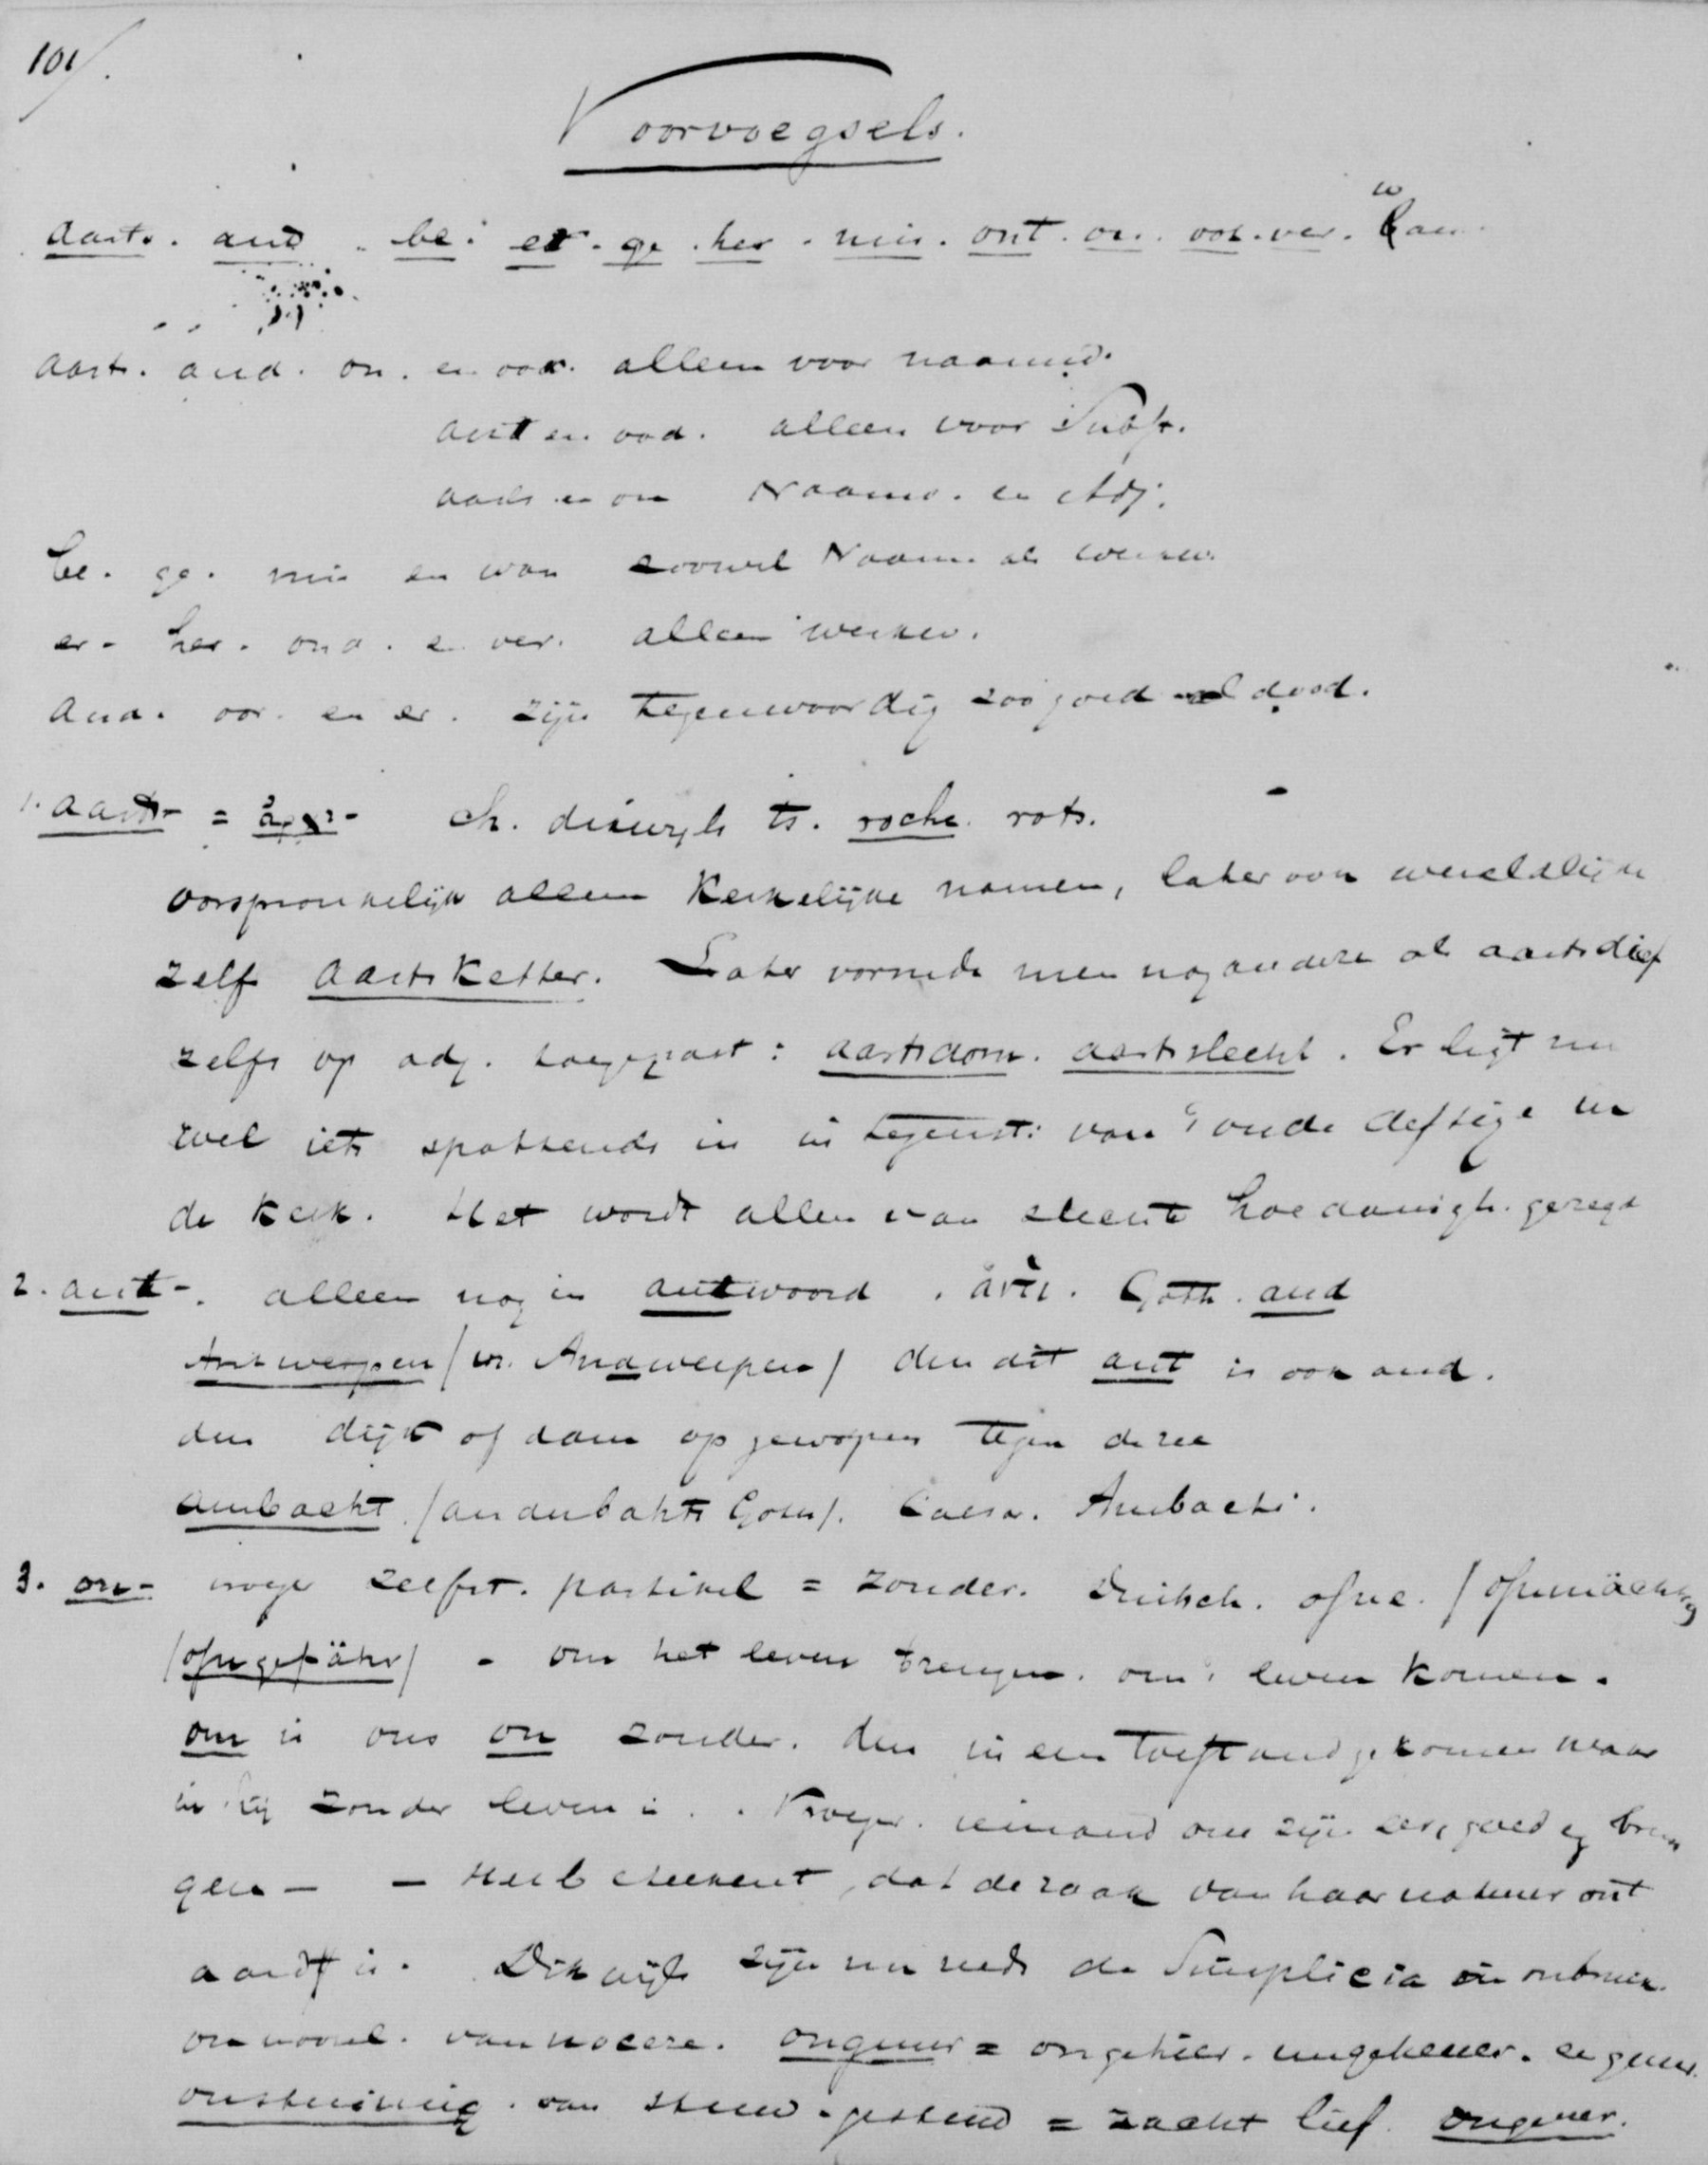 101/.
Voorvoegsels.
aarts. and. be. er. ge. her. mis. ont. on. oor. ver. wan.
aarts. and. on. en oor. alleen voor naamw.
ant en oor. alleen voor Subst.
aarts en on Naamw. en Adj.
be. ge. mis en wan zoowel Naamw. als werkw.
er. her. ont. en ver. alleen werkw.
And. oor. en er. zijn tegenwoordig zoo goed als dood.
1. aarts- = ch. ts. roche. rots.
oorspronkelijk alleen Kerkelijke namen, later ook wereldlijke
zelfs aartsketter. Later vormde men nog andere als aartsdief
zelfs op adj. toegepast: aartsdom. aartsslecht. Er ligt nu
wel iets spottends in in tegenst: van 't oude deftige in
de kerk. Het wordt alleen van slechte hoedanigh. gezegd
2. ant-. alleen nog in antwoord. ἀντι. Goth. and
Antwerpen /vr. Andwerpen/ den dit ant is ook and.
den dijk of dam opgeworpen tegen de zee
ambacht. /andubahti Goth/. Caesar. Ambacti.
3. on- vroeger zelfst. partikel = zonder. Duitsch. ohne. /ohnmächtig
/ohngefähr/ - om het leven brengen. om 't leven komen.
om is ons on zonder. dus in een toestand gekomen waar
in hij zonder leven is. Vroeger. iemand om zijn eer, goed enz bren
gen - - Het beteekent, dat de zaak van haar natuur ont
aard is. Dikwijls zijn nu reeds de Simplicia in onbruik.
onnoozel. van nocere. onguur = ongehier. ungeheuer. en guur.
onstuimig. van stuim. gestuim = zacht lief. onguur.